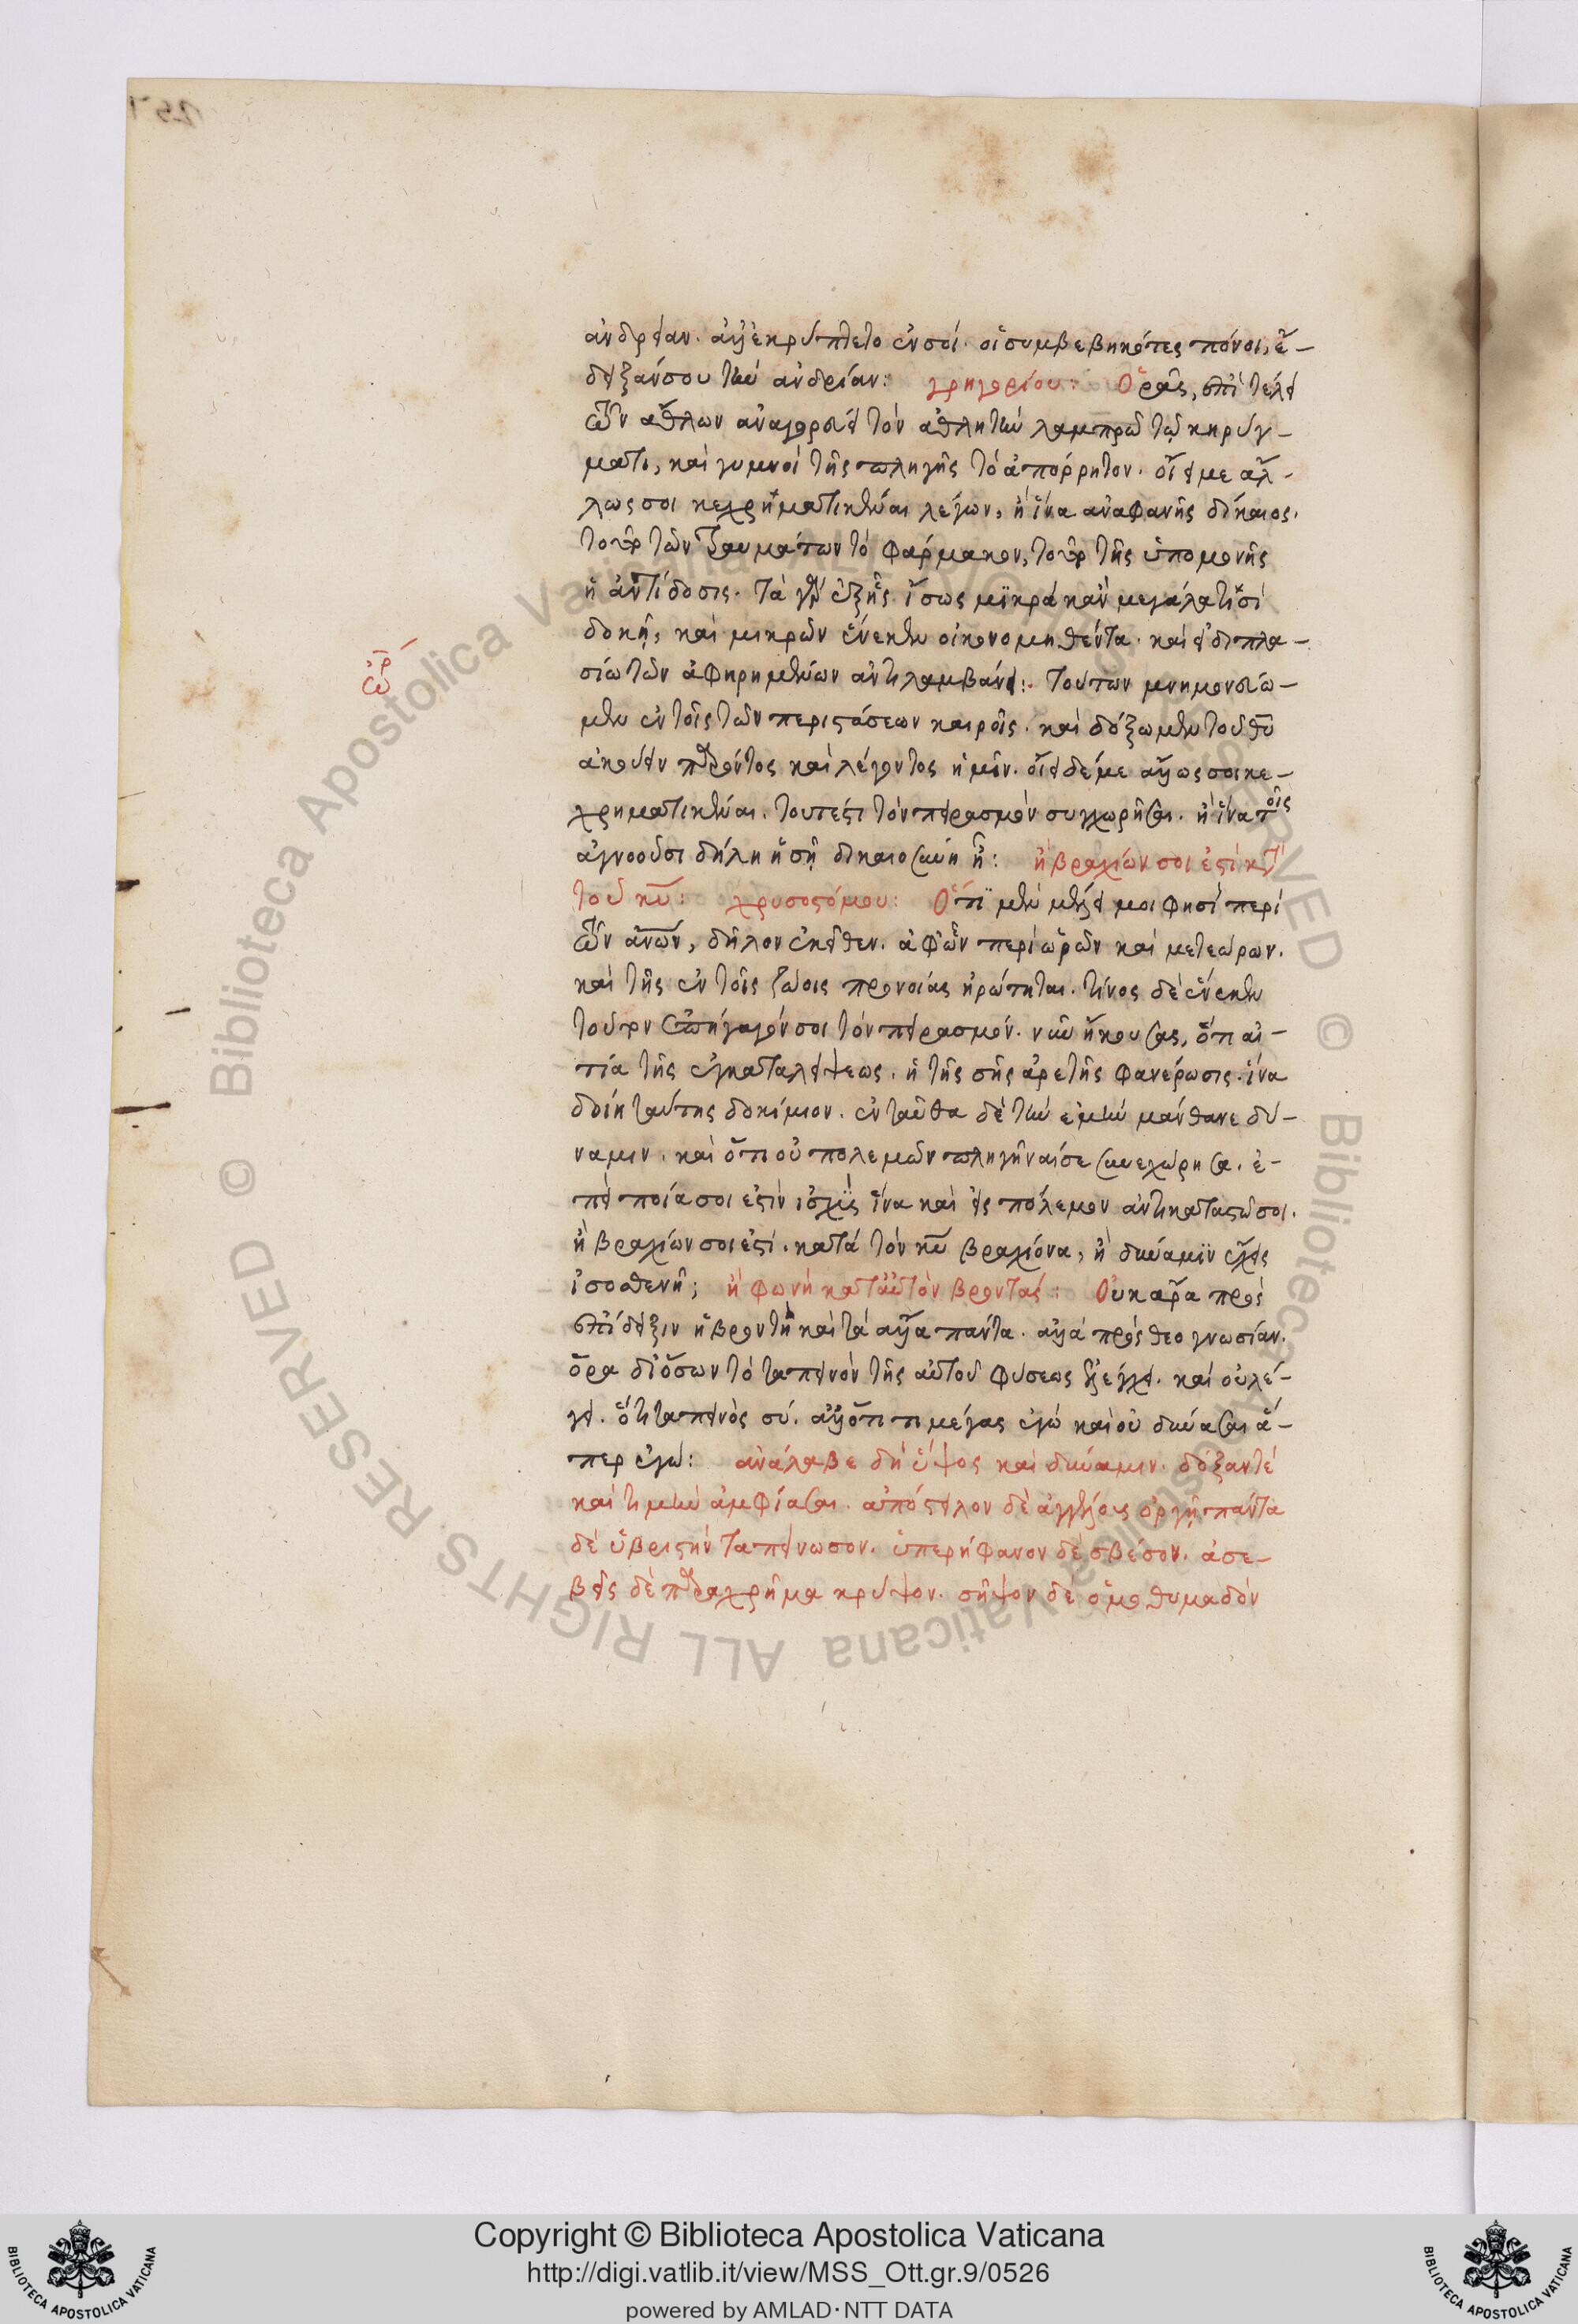 ἀνδρείαν. ἀλλ' ἐκρύπτετο ἐν σοί. οἱ συμβεβηκότες πόνοι, ἔ-
δειξάν σου τὴν ἀνδρίαν: γρηγορίου: Ὁρᾷς, ἐπὶ τέλει
τῶν ἄθλων ἀναγορεύει τὸν ἀθλητὴν λαμπρῶ τῷ κηρύγ-
ματι, καὶ γυμνοῖ τῆς πληγῆς τὸ ἀπόρρητον. οἴει με ἄλ-
λως σοι κεχρηματικέναι λέγων, ἢ ἵνα ἀναφανῇς δίκαιος.
τοῦτο τῶν τραυμάτων τὸ φάρμακον, τοῦτο τῆς ὑπομονῆς
ἡ ἀντίδοσις. τὰ γὰρ ἑξῆς ἴσως μϊκρὰ κἂν μεγάλα τισὶ
δοκῇ, καὶ μικρῶν ἕνεκεν οἰκονομηθέντα. καὶ εἰ διπλα-
σίω τῶν ἀφηρημένων ἀντιλαμβάνει: Τούτων μνημονεύω-
μεν ἐν τοῖς τῶν περιστάσεων καιροῖς. καὶ δόξωμεν τοῦ θῦ
ἀκούειν παρόντος καὶ λέγοντος ἡμῖν. οἴει δέ με ἄλλως σοι κε-
χρηματικέναι. τουτέστι τὸν πειρασμὸν συγχωρῆσαι. ἢ ἵνα τοῖς
ἀγνοοῦσι δήλη ἡ σὴ δικαιοσύνη ᾖ: ἢ βραχίων σοι ἐστὶ κατὰ
τοῦ κῦ: χρυσοστόμου: Ὅτι μὲν μέλει μοι φησὶ περὶ
τῶν ἀνῶν, δῆλον ἐκεῖθεν. ἀφ' ὧν περὶ ὡρῶν καὶ μετεώρων.
καὶ τῆς ἐν τοῖς ζώοις προνοίας ἠρώτηται. τίνος δὲ ἕνεκεν
τοῦτον ἐπήγαγόν σοι τὸν πειρασμόν. νῦν ἤκουσας, ὅτι αἰ-
τία τῆς ἐγκαταλείψεως. ἡ τῆς σῆς ἀρετῆς φανέρωσις. ἵνα
δοίη ταύτης δοκίμιον. ἐνταῦθα δὲ τὴν ἐμὴν μάνθανε δύ-
ναμιν. καὶ ὅτι οὐ πολεμῶν πληγῆναί σε συνεχώρησα. ἐ-
πεὶ ποία σοι ἐστὶν ἰσχὺς ἵνα καὶ εἰς πόλεμον ἀντικαταστῶ σοι.
ἢ βραχίων σοι ἐστὶ. κατὰ τὸν κῦ βραχίονα, ἢ δύναμϊν ἔχεις
ἰσοσθενῆ; ἢ φωνῇ κατ' αὐτὸν βροντᾷς: Οὐκ ἄρα πρὸς
ἐπίδειξιν ἡ βροντὴ καὶ τὰ ἄλλα πάντα. ἀλλὰ πρὸς θεογνωσίαν.
ὅρα δι' ὅσων τὸ ταπεινὸν τῆς αὐτοῦ φύσεως ἐλέγχει. καὶ οὐ λέ-
γει. ὅτι ταπεινὸς σύ. ἀλλ' ὅτι τι μέγας ἐγὼ καὶ οὐ δύνασαι ἅ-
περ ἐγώ: ἀνάλαβε δὴ ὕψος καὶ δύναμιν. δόξαν τὲ
καὶ τιμὴν ἀμφίασαι. ἀπόστειλον δὲ ἀγγέλους ὀργῇ πάντα
δὲ ὑβριστὴν ταπείνωσον. ὑπερήφανον δὲ σβέσον. ἀσε-
βεῖς δὲ παραχρῆμα κρύψον. σῆψον δὲ ὁμοθυμαδὸν
Copyright © Biblioteca Apostolica Vaticana
http://digi.vatlib.it/view/MSS_Ott.gr.9/0526
powered by AMLAD·NTT DATA